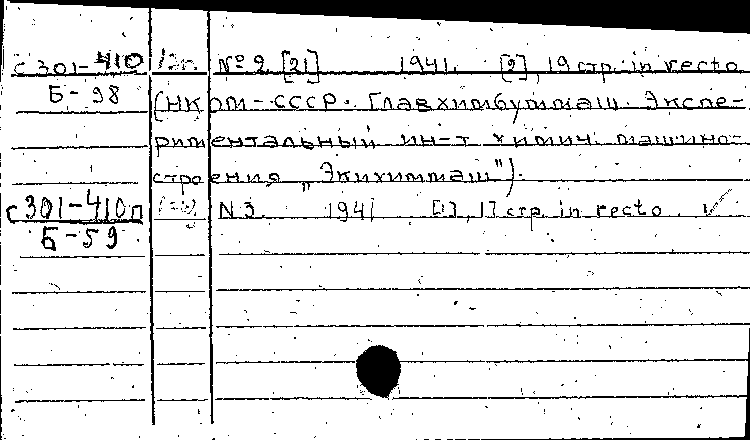 с 301-410 12л. № 2 [21] 1941. [2], 19 стр. in recto
Б-98 (НКОМ-СССР. Главхимбуммаш. Экспе-
риментальный ин-т химич. машино-
строения „Экихиммаш").
с 301-410 л N 3. 1941 [1], 17 стр. in recto. ✓
Б-59